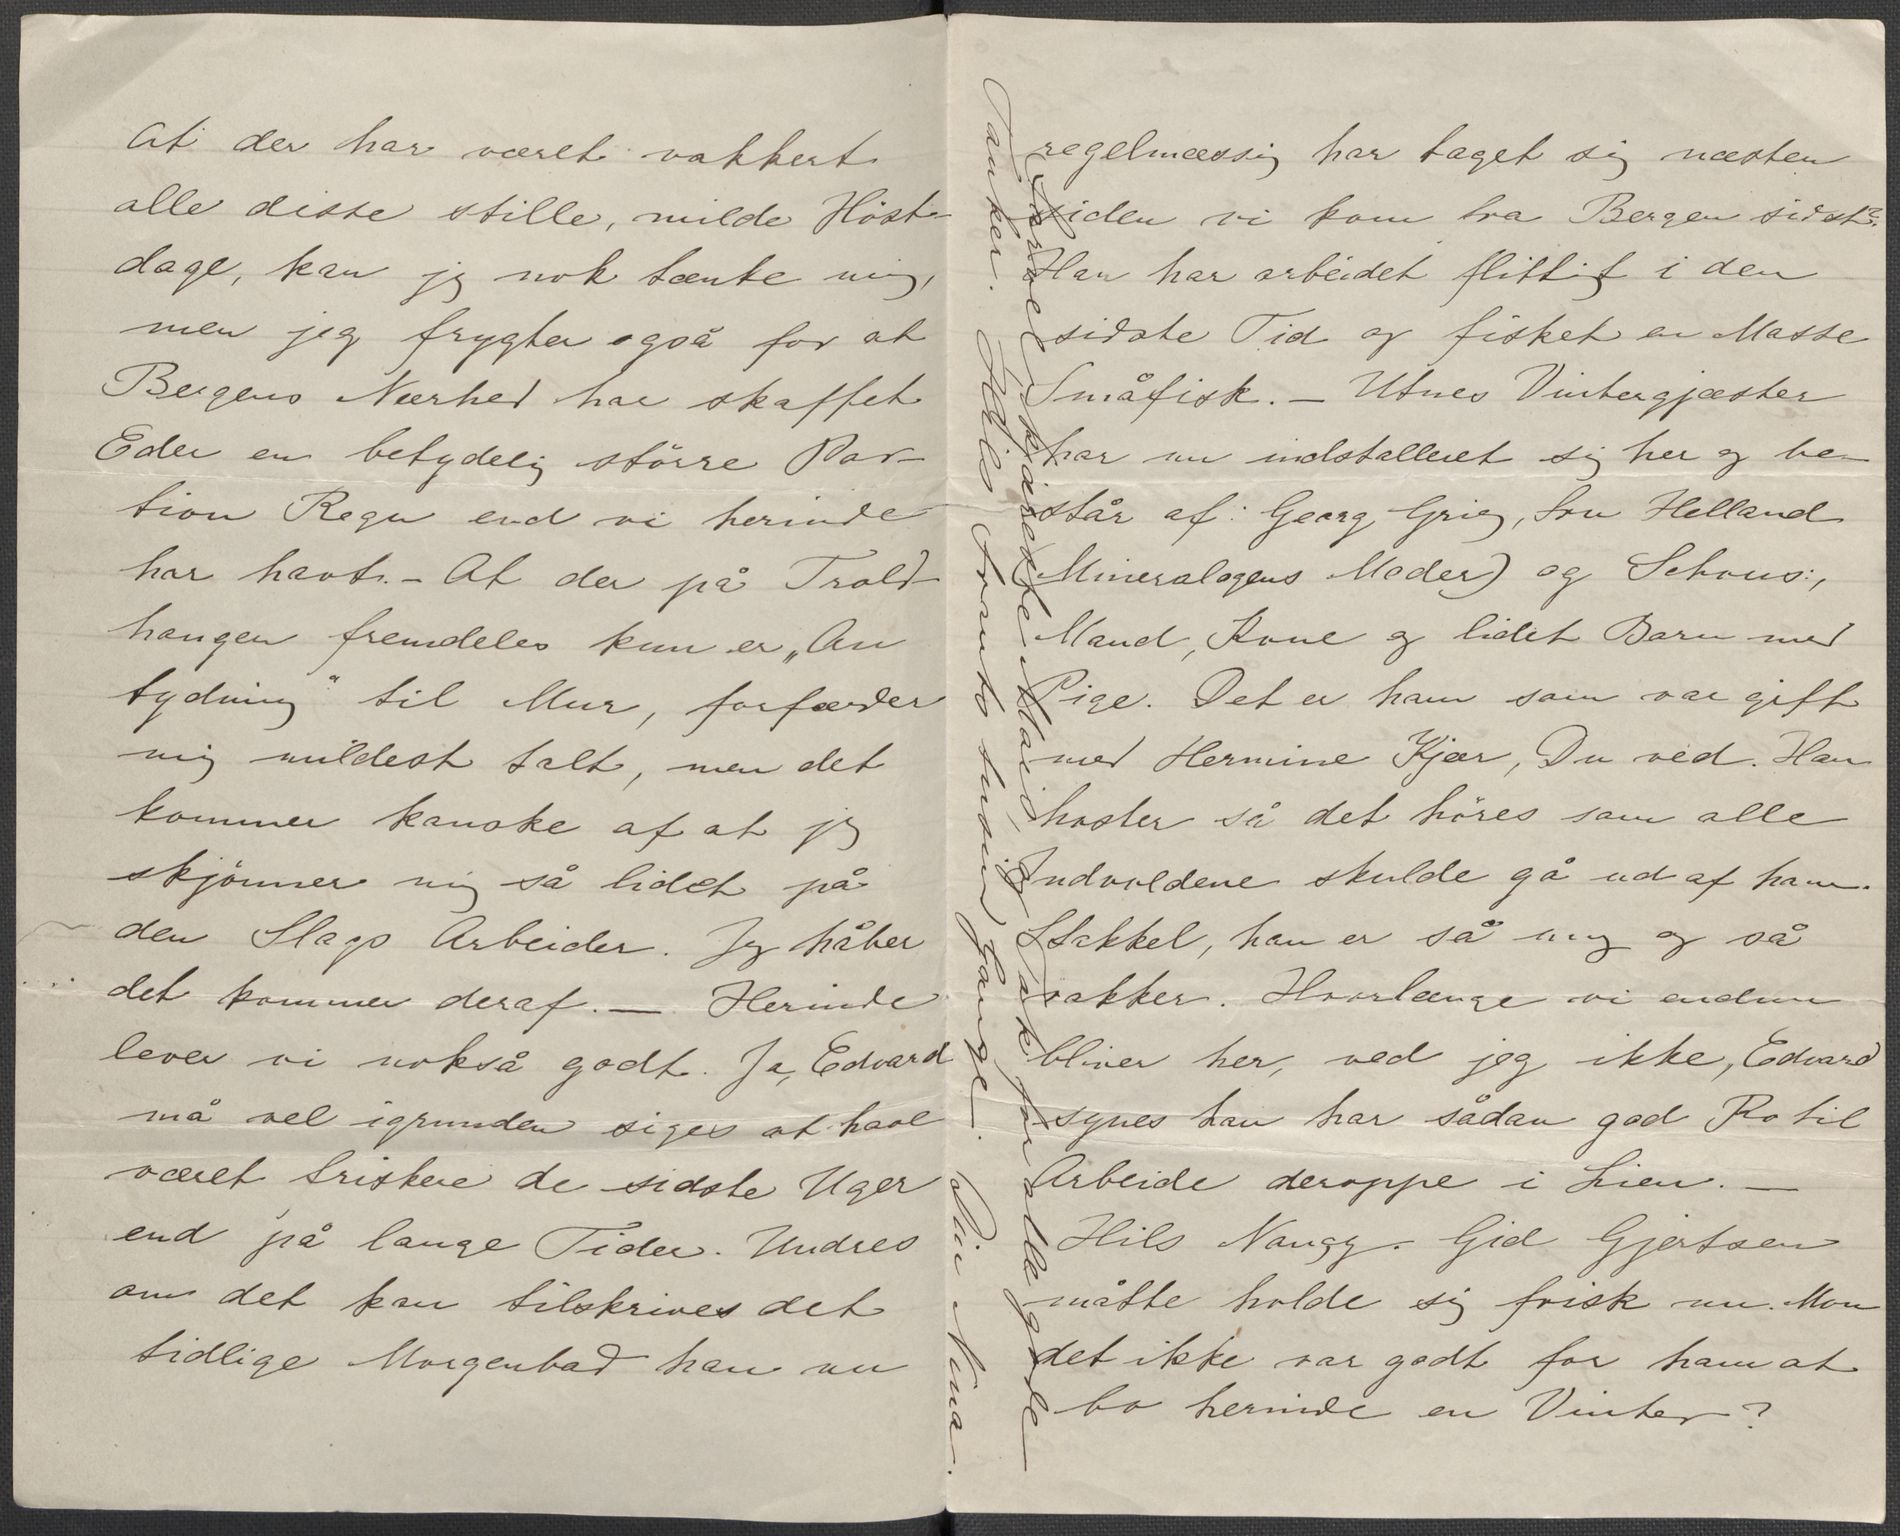 At der har været vakkert
alle disse stille, milde Höst-
dage, kan jeg nok tænke mig,
men jeg frygter også for at
Bergens Nærhed har skaffet
Eder en betydelig större Por-
tion Regn end vi herinde
har havt. – At der på Trold-
haugen fremdeles kun er „An
tydning" til Mur, forfærder
mig mildest talt, men det
kommer kanske af at jeg
skjönner mig så lidet på
den Slags Arbeider. Jeg håber
det kommer deraf. — Herinde
lever vi nokså godt. Ja, Edvard
må vel igrunden siges at have
været friskere de sidste Uger
end på lange Tider. Undres
om det kan tilskrives det
tidlige Morgenbad han nu
regelmæssig har taget sig næsten
siden vi kom fra Bergen sidst?
Han har arbeidet flittigt i den
sidste Tid og fisket en Masse
Småfisk. – Utnes Vintergjæster
har nu indstalleret sig her og be-
står af: Georg Grieg, Fru Helland
Mineralogens Moder) og Schous:,
Mand, Kone og lidet Barn med
Pige. Det er ham som var gift
med Hermine Kjær, Du ved. Han
hoster så det höres som alle
Indvoldene skulde gå ud af ham.
Stakkel, han er så ung og så
vakker. Hvorlænge vi endnu
bliver her, ved jeg ikke, Edvard
synes han har sådan god Ro til
Arbeide deroppe i Lien. —
Hils Nanny. Gid Gjertsen
måtte holde sig frisk nu. Mon
det ikke var godt for ham at
bo herinde en Vinter?
Farvel, kjæreste Marie, og Tak for alle gode
Tanker. Hils Frants tusind Gange. Din Nina.